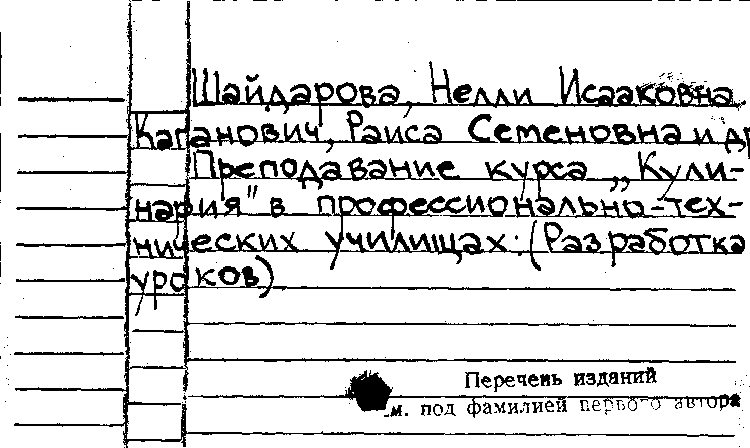 Шайдарова, Нелли Исааковна.
Каганович, Раиса Семеновна и др
Преподавание курса „Кули-
нария" в профессионально-тех-
нических училищах: (Разработка
уроков)
Перечень изданий
м. под фамилией первого автора